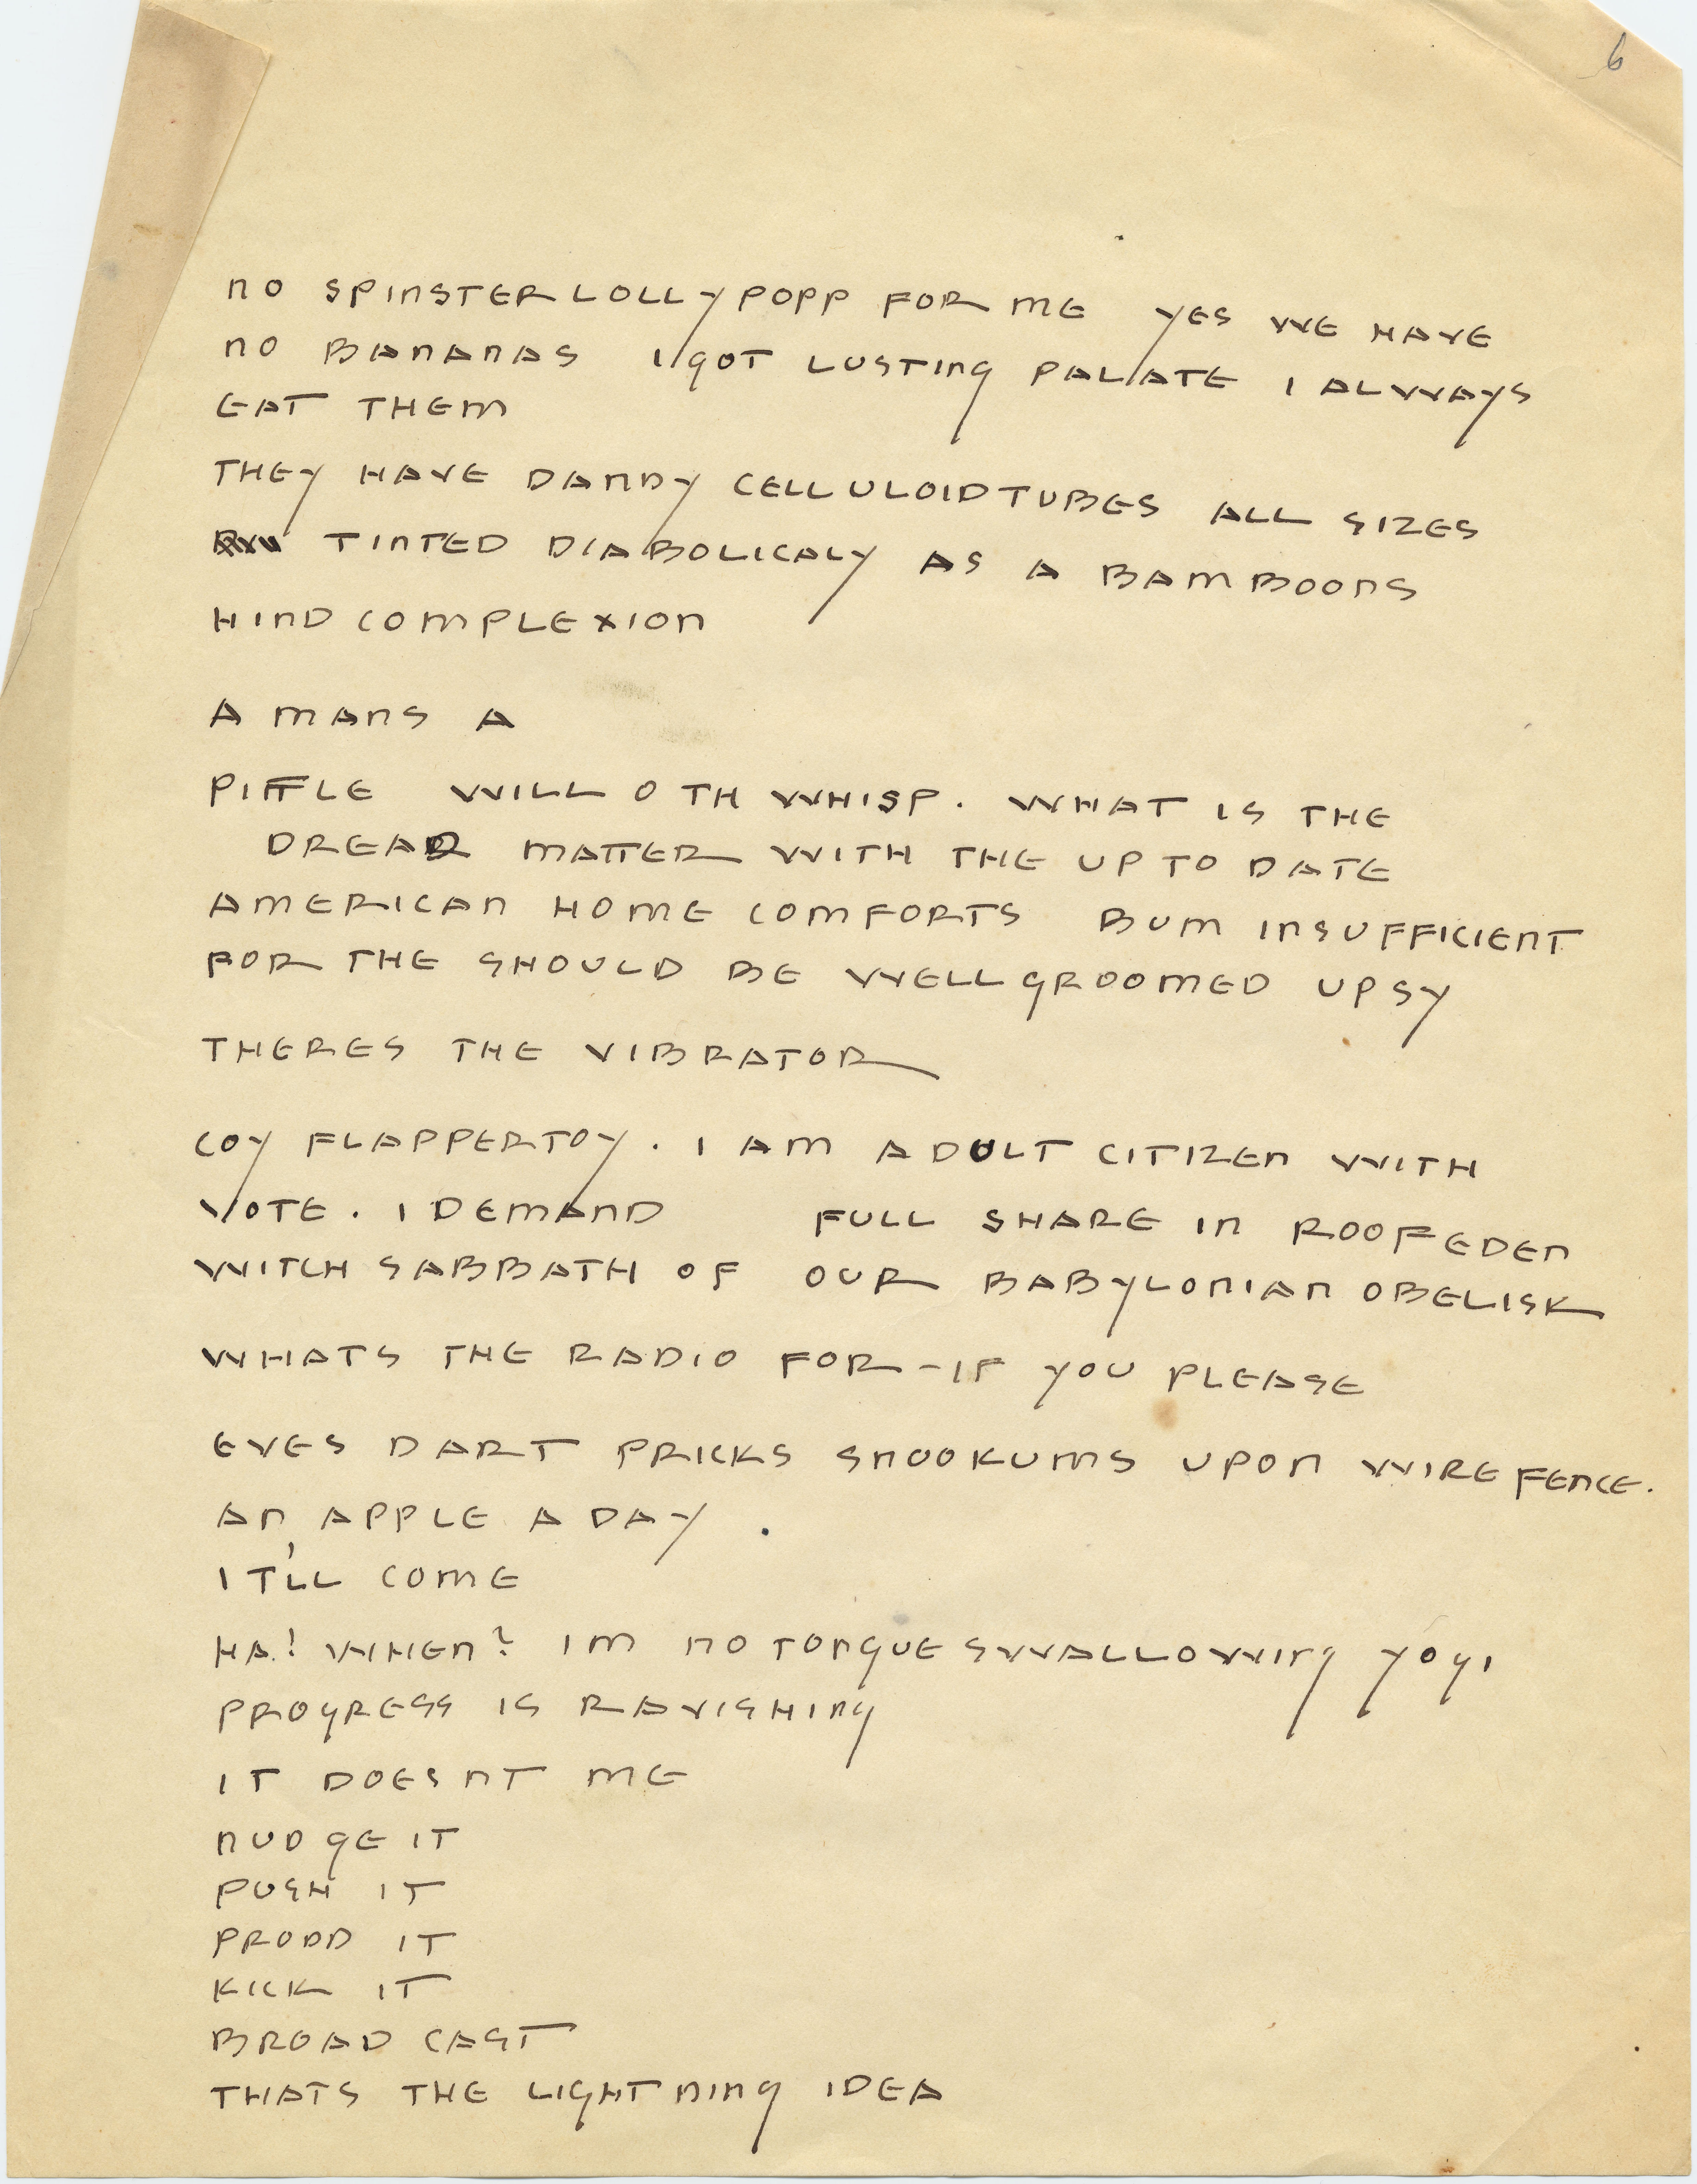 6
NO SPINSTERLOLLYPOPP FOR ME YES WE HAVE
NO BANANAS I GOT LUSTING PALATE I ALWAYS
EAT THEM
THEY HAVE DANDY CELLULOIDTUBES ALL SIZES
TINTED DIABOLICALY AS A BAMBOONS
HINDCOMPLEXION
A MANS A
PIFFLE WILL O TH WHISP. WHAT IS THE
DREAD MATTER WITH THE UP TO DATE
AMERICAN HOME COMFORTS BUM INSUFFICIENT
FOR THE SHOULD BE WELLGROOMED UPSY
THERES THE VIBRATOR
COY FLAPPERTOY. I AM ADULT CITIZEN WITH
VOTE. I DEMAND FULL SHARE IN ROOFEDEN
WITCHSABBATH OF OUR BABYLONIAN OBELISK
WHATS THE RADIO FOR - IF YOU PLEASE
EVES DART PRICKS SNOOKUMS UPON WIREFENCE.
AN APPLE A DAY.
IT'LL COME
HA! WHEN? IM NO TONGUESWALLOWING YOGI
PROGRESS IS RAVISHING
IT DOESNT ME
NUDGE IT
PUSH IT
PRODD IT
KICK IT
BROADCAST
THATS THE LIGHTNING IDEA